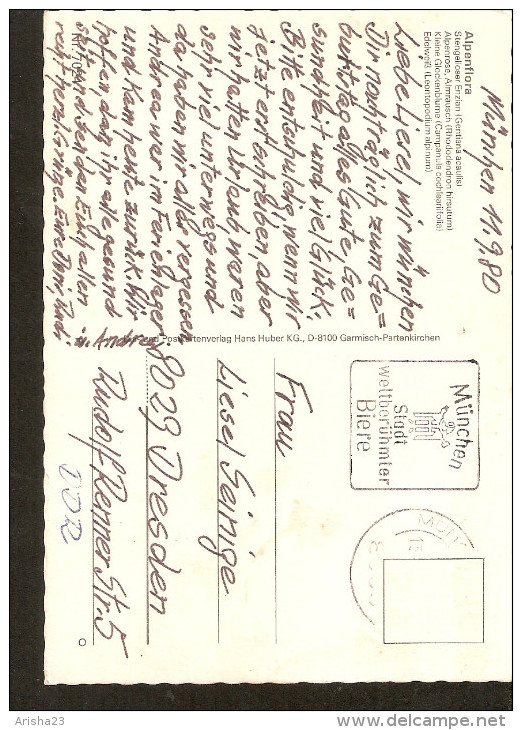 Alpenflora
Stengelloser Enzian (Gentiana acaulis)
Alpenrose, Almrausch (Rhododendron hirsutum)
Kleine Glockenblume (Campanula cochlearifolia)
Edelweiß (Leontopodium alpinum)
München 11.9.80
Liebe Liesel, wir wünschen
Dir nachträglich zum Ge=
burtstag alles Gute, Ge=
sundheit und viel Glück.
Bitte entschuldig wenn wir
jetzt erst schreiben, aber
wir hatten Urlaub, waren
sehr viel unterwegs und
da vergessen
Andrea war im Ferienlager
und kam heute zurück. Wir
hoffen daß ihr alle gesund
seid
recht herzl. Grüße Eure Rudi
u. Andrea
Nr. 7051
Postkartenverlag Hans Huber KG., D-8100 Garmisch-Partenkirchen
München
Stadt
weltberühmter
Biere
Frau
Liesel Seinige
8029 Dresden
Rudolf Renner Str. 5
DDR
Arisha23
www.delcampe.net